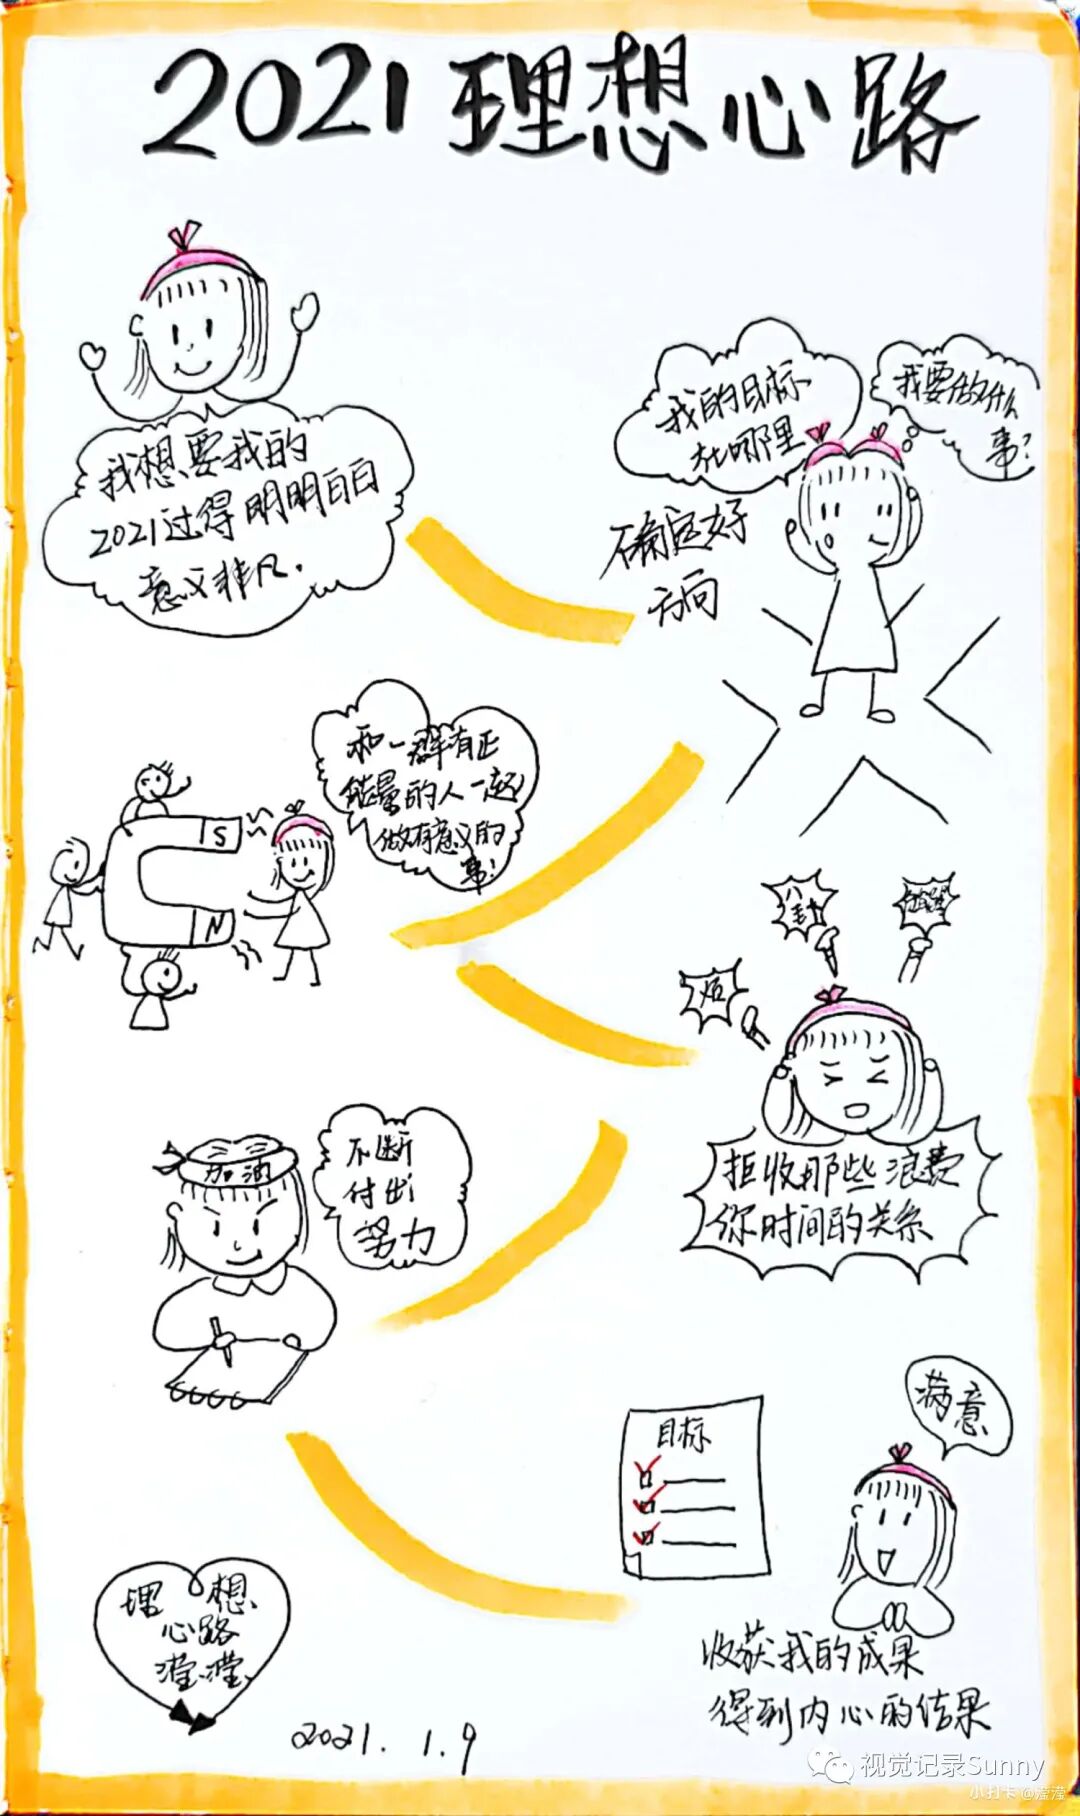 2021理想心路
我想要我的
2021过得明明白白
意义非凡.
我的目标
在哪里
我要做什么
事?
确定好
方向
和一群有正
能量的人一起
做有意义的
事!
S
N
八卦
拒收那些浪费
你时间的关系
加油
不断
付出
努力
目标
满意
收获我的成果
得到内心的结果
理想
心路
滢滢
2021.1.9
视觉记录Sunny
小打卡 @滢滢